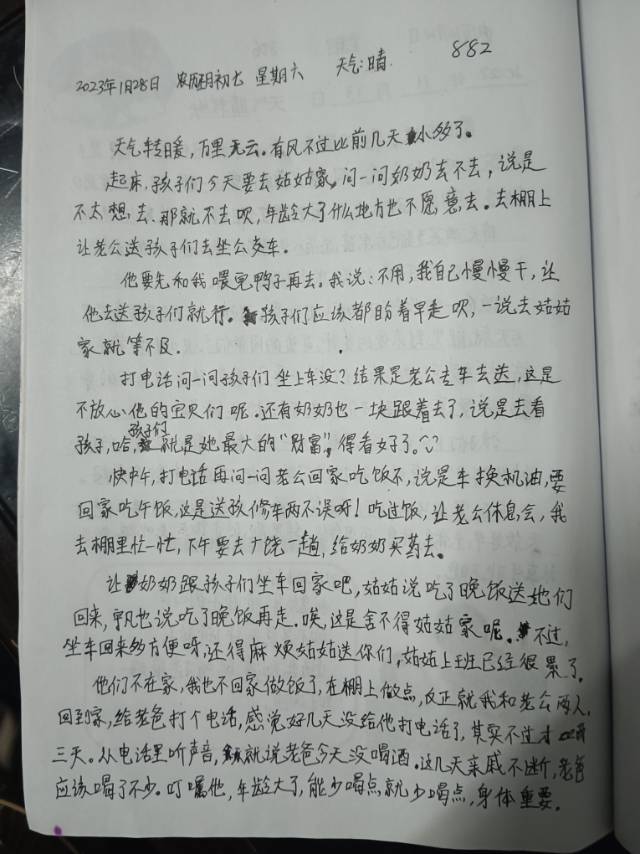 882
2023年1月28日 农历正月初七 星期六 天气:晴.
天气转暖,万里无云。有风不过比前几天小多了。
起床,孩子们今天要去姑姑家,问一问奶奶去不去,说是
不太想去.那就不去呗,年龄大了什么地方也不愿意去。去棚上
让老公送孩子们去坐公交车.
他要先和我喂完鸭子再去。我说:不用,我自己慢慢干,让
他去送孩子们就行。孩子们应该都盼着早走呗,一说去姑姑
家就等不及.
打电话问一问孩子们坐上车没?结果是老公走车去送,这是
不放心他的宝贝们呢.还有奶奶也一块跟着去了,说是去看
孩子,哈,孩子们就是她最大的"财富",得看好了。
快中午,打电话再问一问老公回家吃饭不,说是车换机油,要
回家吃午饭,这是送孩修车两不误呀!吃过饭,让老公休息会,我
去棚里忙一忙,下午要去广饶一趟,给奶奶买药去。
让奶奶跟孩子们坐车回家吧,姑姑说吃了晚饭送她们
回来,也说吃了晚饭再走.唉,这是舍不得姑姑家呢。不过,
坐车回来多方便呀,还得麻烦姑姑送你们,姑姑上班已经很累了.
他们不在家,我也不回家做饭了,在棚上做点,反正就我和老公两人,
回到家,给老爸打个电话,感觉好几天没给他打电话了,其实不过才
三天。从电话里听声音,就说老爸今天没喝酒。这几天亲戚不断,老爸
应该喝了不少。叮嘱他,年龄大了,能少喝点就少喝点,身体重要。